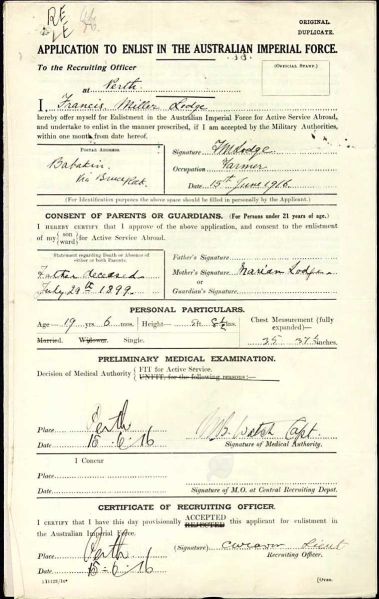 ORIGINAL
DUPLICATE.
APPLICATION TO ENLIST IN THE AUSTRALIAN IMPERIAL FORCE.
To the Recruiting Officer
(OFFICIAL STAMP.)
at Perth
I, Francis Miller Lodge
hereby offer myself for Enlistment in the Australian Imperial Force for Active Service Abroad,
and undertake to enlist in the manner prescribed, if I am accepted by the Military Authorities,
within one month from date hereof.
POSTAL ADDRESS.
Babakin
Via Bruce Rock
Signature FMLodge
Occupation Farmer
Date 15th June 1916
(For Identification purposes the above space should be filled in personally by the Applicant.)
CONSENT OF PARENTS OR GUARDIANS. (For Persons under 21 years of age.)
I HEREBY CERTIFY that I approve of the above application, and consent to the enlistment
of my (son) (ward) for Active Service Abroad.
Statement regarding Death or Absence of
either or both Parents.
Father deceased
July 29th 1899.
Father's Signature
Mother's Signature Marian Lodge
or
Guardian's Signature
PERSONAL PARTICULARS.
Age 19 yrs 6 mos. Height 5ft 8½ins.
Married. Widower. Single.
Chest Measurement (fully
expanded)
35 37½ inches.
PRELIMINARY MEDICAL EXAMINATION.
Decision of Medical Authority { FIT for Active Service.
UNFIT, for the following reasons:
Place Perth
Date 15-6-16
Welsh Capt
Signature of Medical Authority.
I Concur
Place
Date
Signature of M.O. at Central Recruiting Depot.
CERTIFICATE OF RECRUITING OFFICER.
I CERTIFY that I have this day provisionally ACCEPTED REJECTED this applicant for enlistment in
the Australian Imperial Force.
Place Perth
Date 15-6-16
(Signature) Lieut
Recruiting Officer.
[OVER.